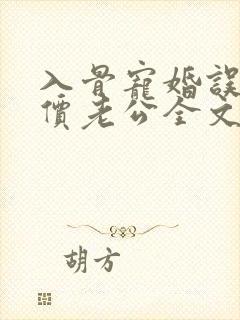 入骨寵婚誤
價老公全文
胡方